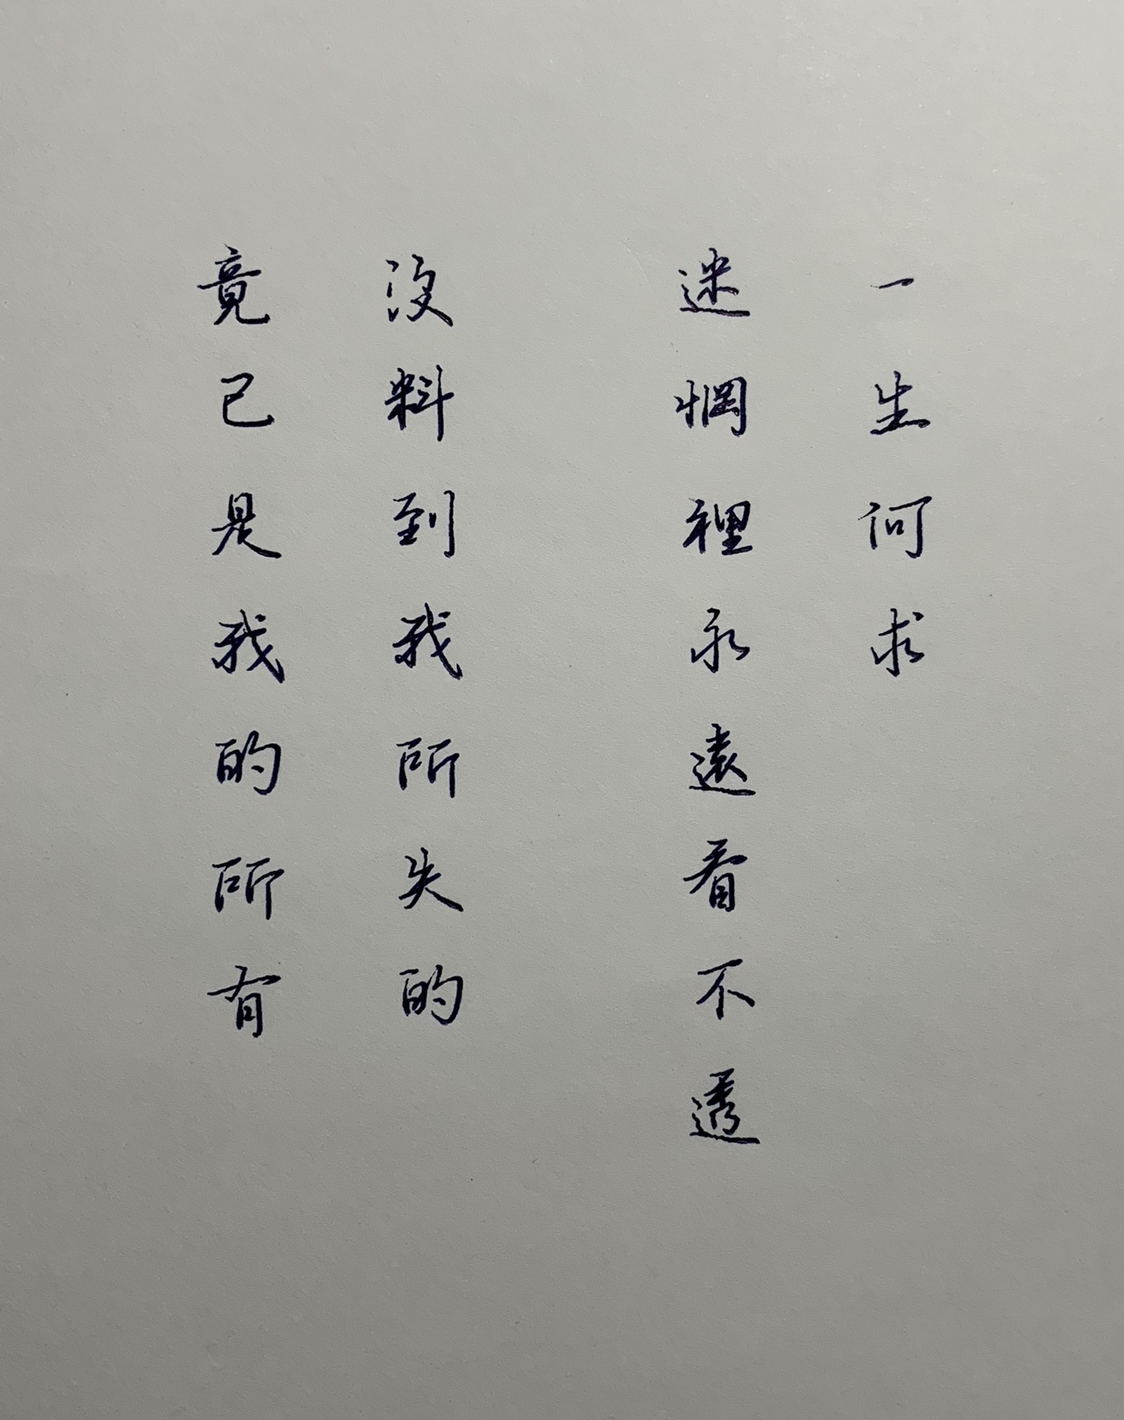 一生何求
迷惘裡永遠看不透
沒料到我所失的
竟已是我的所有